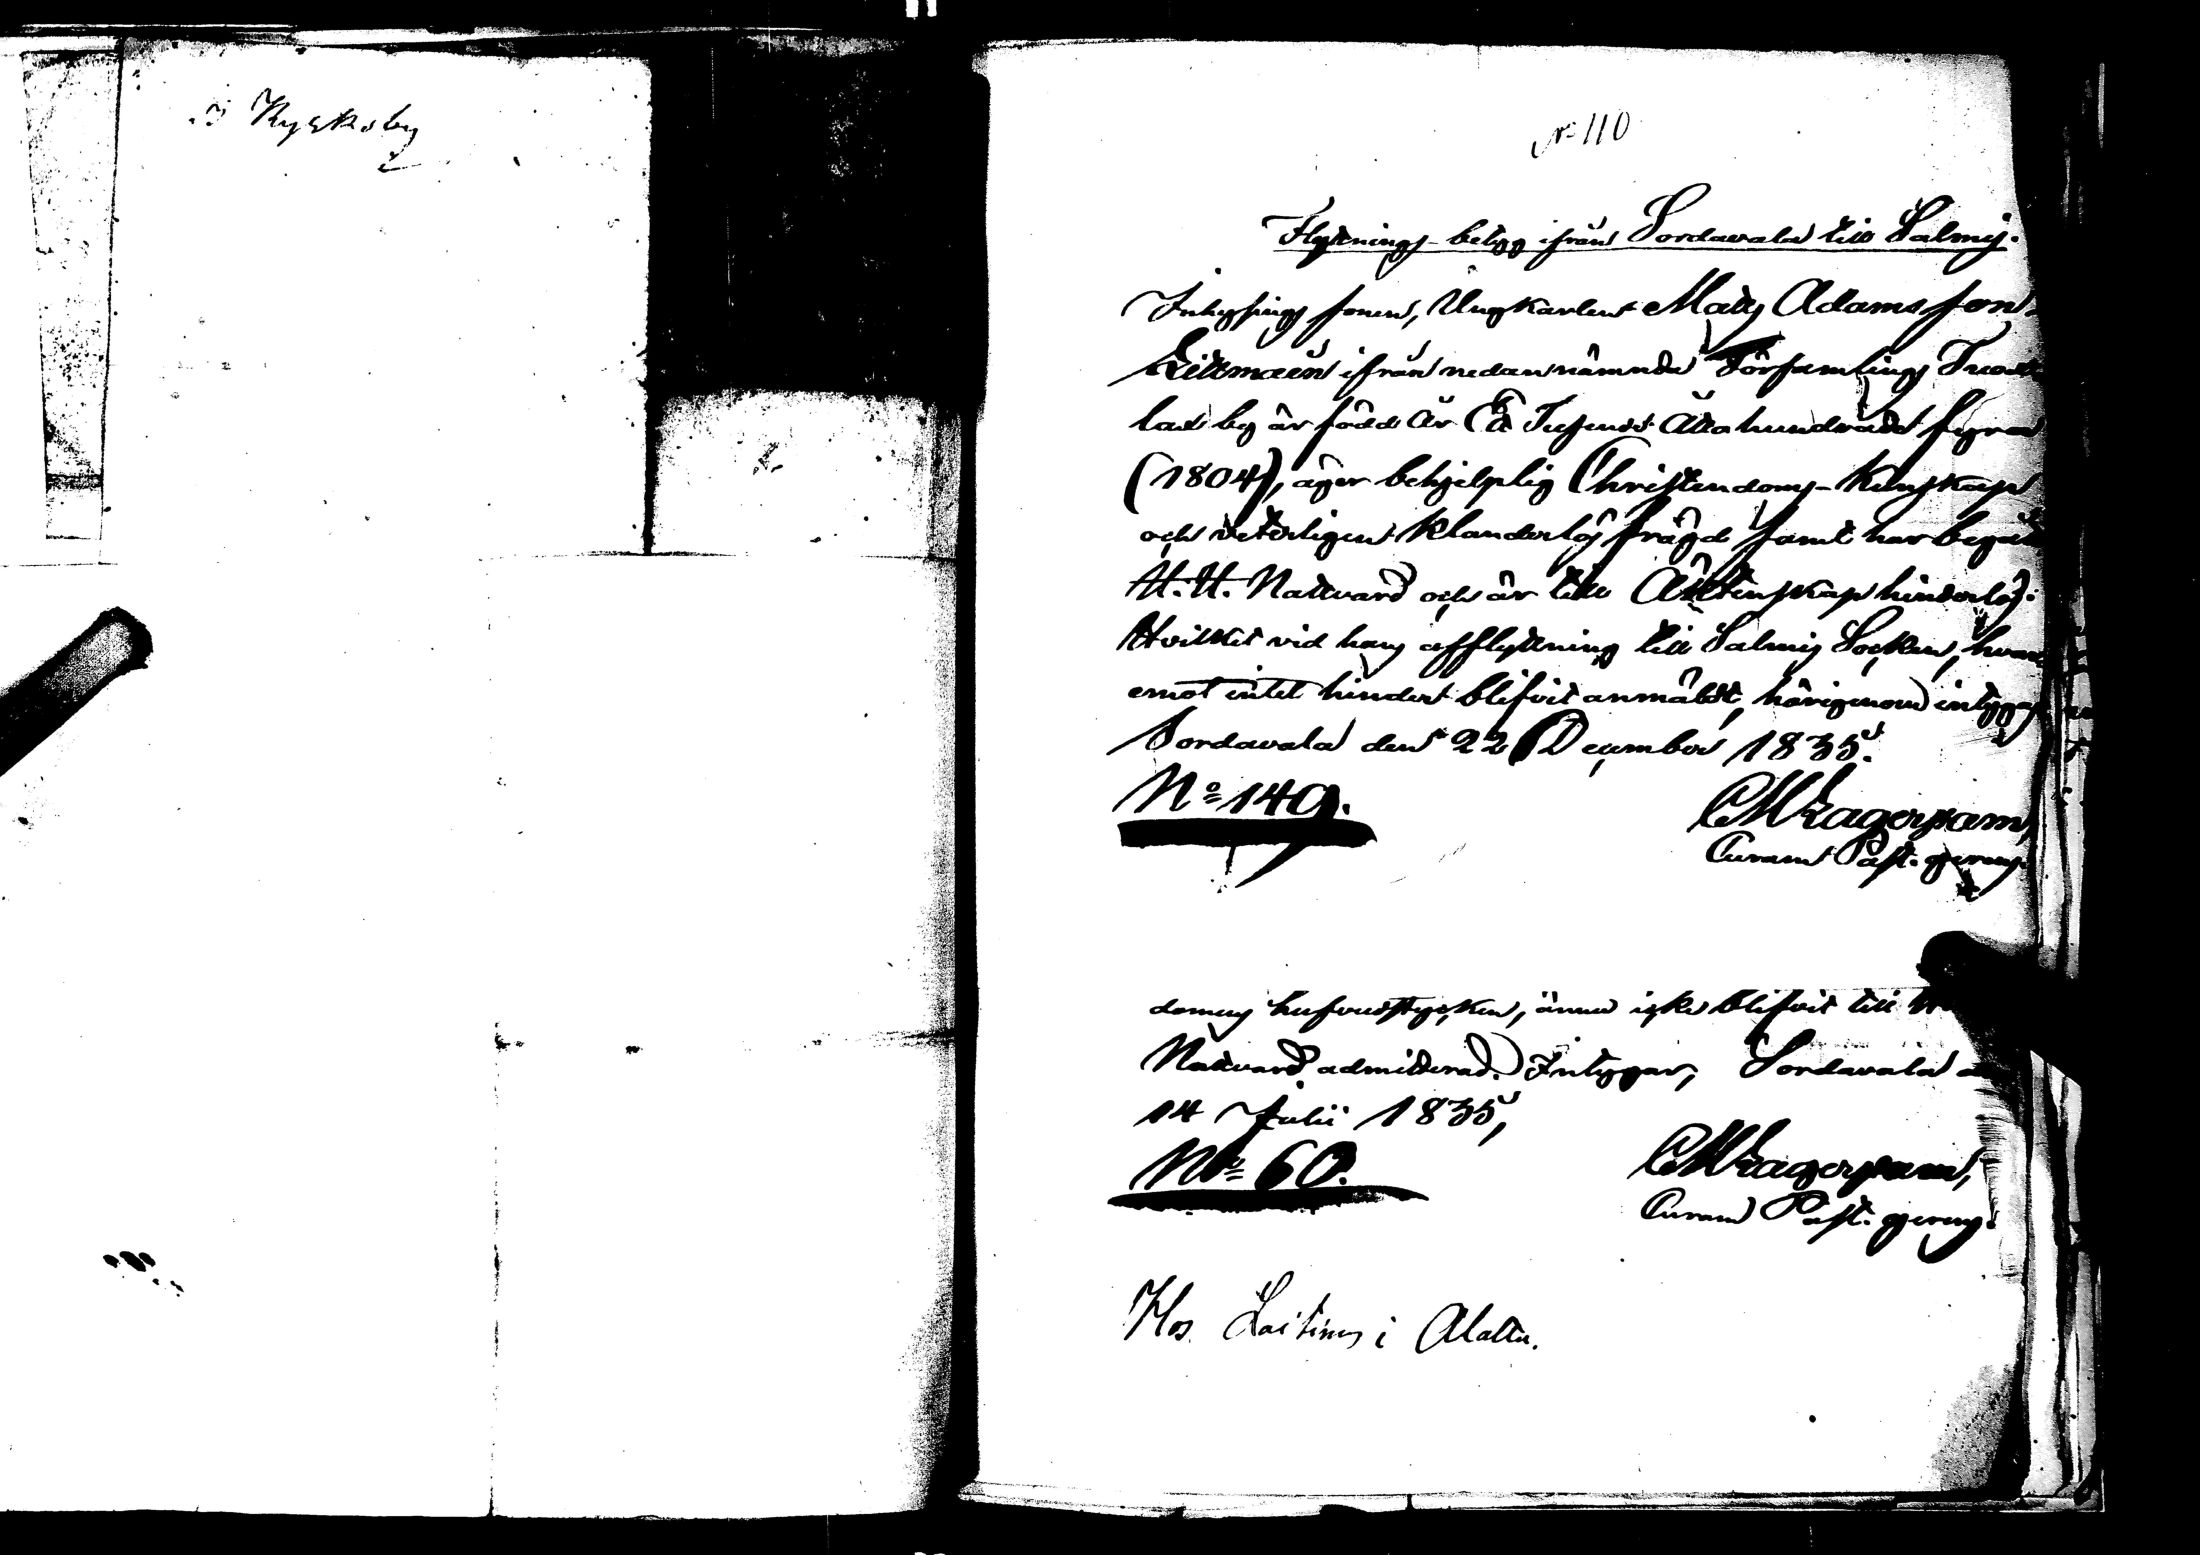 i Kyrkoby
N° 110
Flyttnings-betyg ifrån Sordavala till Salmis.
Inhysings sonen, Ungkarlen Matts Adamsson
ifrån nedannämnda Församlings
lax by är född År Ett Tusende Åttahundrade fyra
(1804), äger behjelplig Christendoms-Kunskap
och veterligen klanderlös frägd samt har begått
H. H. Nattvard och är till Äktenskap hinderlös:
Hvilket vid hans afflyttning till Salmis Socken, hvar-
emot intet hinder blifvit anmäldt, härigenom intygas
Sordavala den 22 December 1835.
N° 149.
Curam Past. gerens.
doms hufvudstycken, ännu icke blifvit till
Nattvard admitterad. Intygar, Sordavala
14 Julii 1835,
N° 60.
Curam Past. gerens.
Hos Laitinen i Alattu.